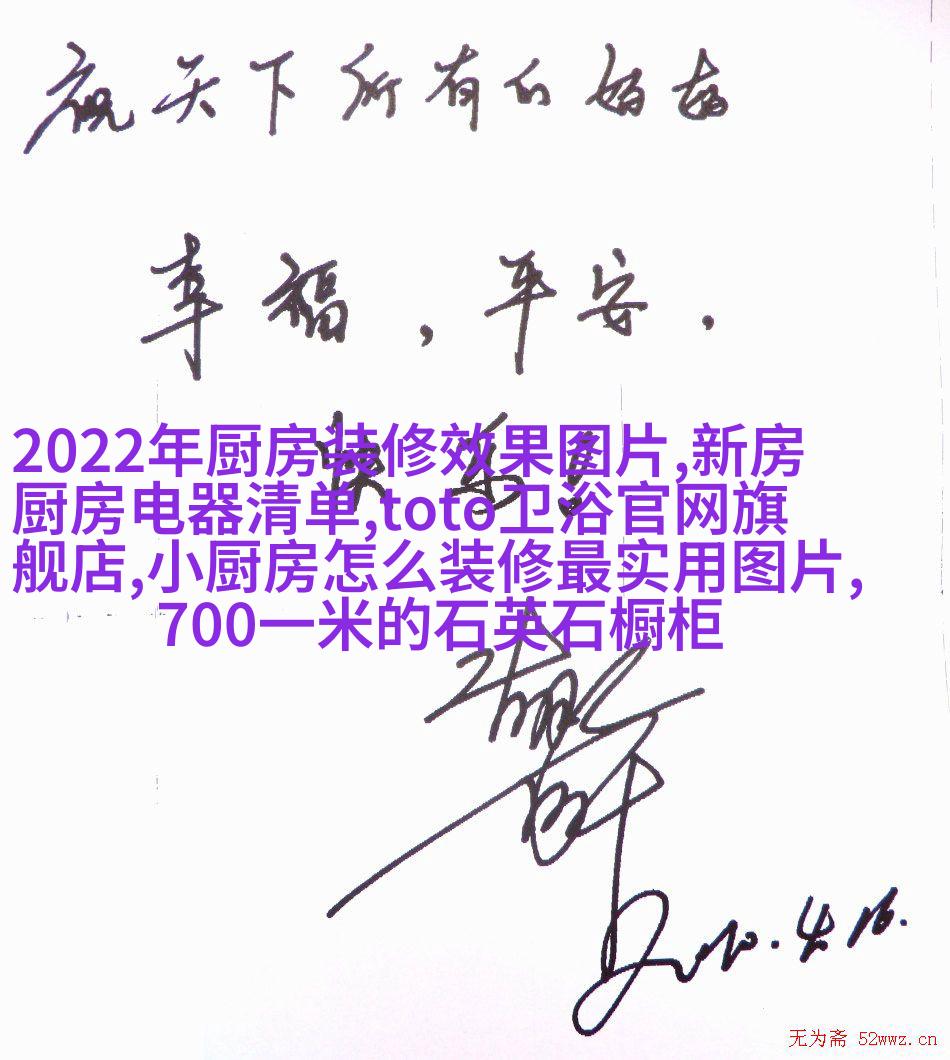 祝天下所有的妈妈
幸福，平安，
快乐！
2022年厨房装修效果图片,新房
厨房电器清单,toto卫浴官网旗
舰店,小厨房怎么装修最实用图片,
700一米的石英石橱柜
2010.4.16.
无为斋 52wwz.cn